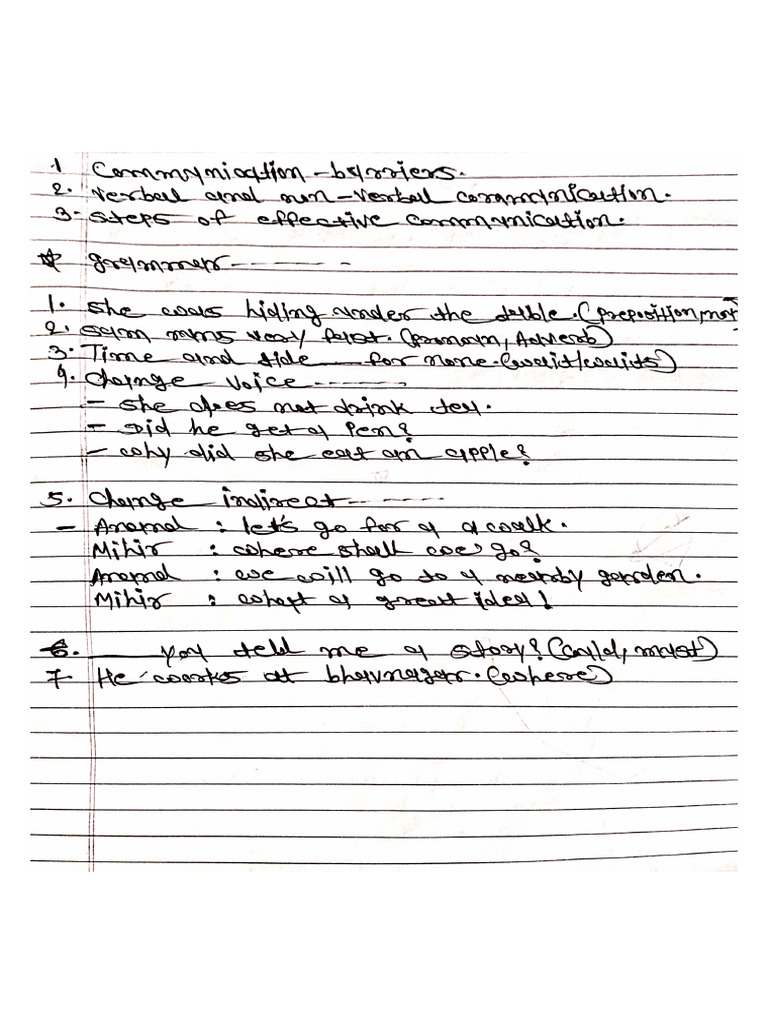 1 Communication - barriers.
2. Verbal and non-verbal communication.
3- steps of effective communication.
* grammer -------
1. She was hiding under the table. (preposition, not
2. Sam runs very fast. (pronoun, Adverb)
3. Time and tide ___ for none. (wait/waits)
4. Change voice -------
- She does not drink tea.
- Did he get a pen?
- why did she eat an apple?
5. Change indirect -------
- Anand : let's go for a a walk.
Mihir : where shall we go?
Anand : we will go to a nearby garden.
Mihir : what a great idea!
6. ______ you tell me a story? (could, must)
7- He works at bhavnagar. (where)